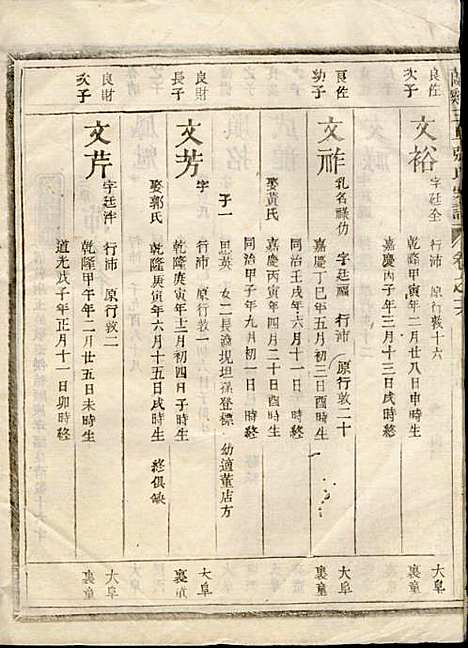 良佐
次子
文裕
字廷全 行沛 原行敦十六
乾隆甲寅年二月廿八日申時生
嘉慶丙子年三月十三日戌時終
大阜
裏童
良佐
幼子
文祚
乳名祿仂 字廷福 行沛 原行敦二十
嘉慶丁巳年五月初三日酉時生
同治壬戌年六月十一日終
娶黃氏
嘉慶丙寅年四月二十日時生
同治甲子年九月初一日時終
大阜
裏童
良財
長子
文芳
字 行沛 原行敦一
乾隆庚寅年十二月初四日子時生
娶郭氏 乾隆庚寅年六月十五日戌時生 終俱缺
子一 思英 女二長適峴坦葆登標 幼適董店方
大阜
裏童
良財
次子
文芹
字廷泮 行沛 原行敦二
乾隆甲午年二月廿五日未時生
道光戊子年正月十一日卯時終
大阜
裏童